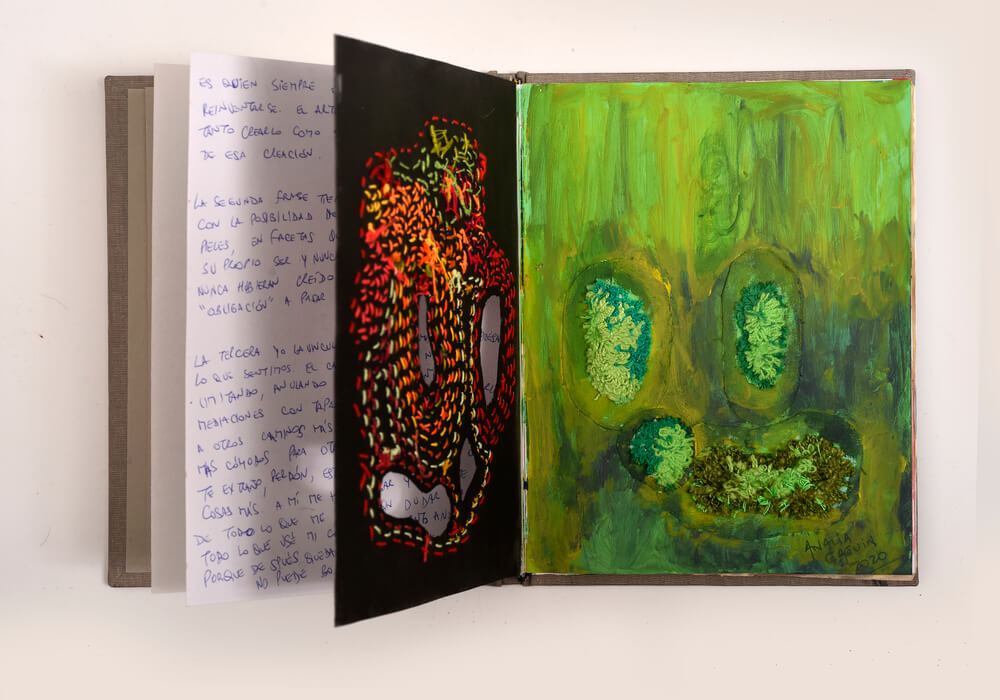 ES QUIEN SIEMPRE
REINVENTARSE. EL ART
TANTO CREARLO COMO
DE ESA CREACIÓN.
LA SEGUNDA FRASE TIE
CON LA POSIBILIDAD DE
PIELES, EN FACETAS Q
SU PROPIO SER Y NUNC
NUNCA HUBIERAN CREÍDO
"OBLIGACIÓN" A PARAR
LA TERCERA YO LA VINCUL
LO QUE SENTIMOS. EL CA
LIMITANDO, ANULANDO
MEDIACIONES CON TAPA
A OTROS CAMINOS MÁS
MÁS CÓMODOS PARA OTR
TE EXTRAÑO, PERDÓN, ES
COSAS MÁS. A MÍ ME H
DE TODO LO QUE ME
TODO LO QUE USÉ MI C
PORQUE DESPUÉS QUEDA
NO PUEDE BO
AR Y
EN DUDAR
ANALIA
GAGUIN
2020